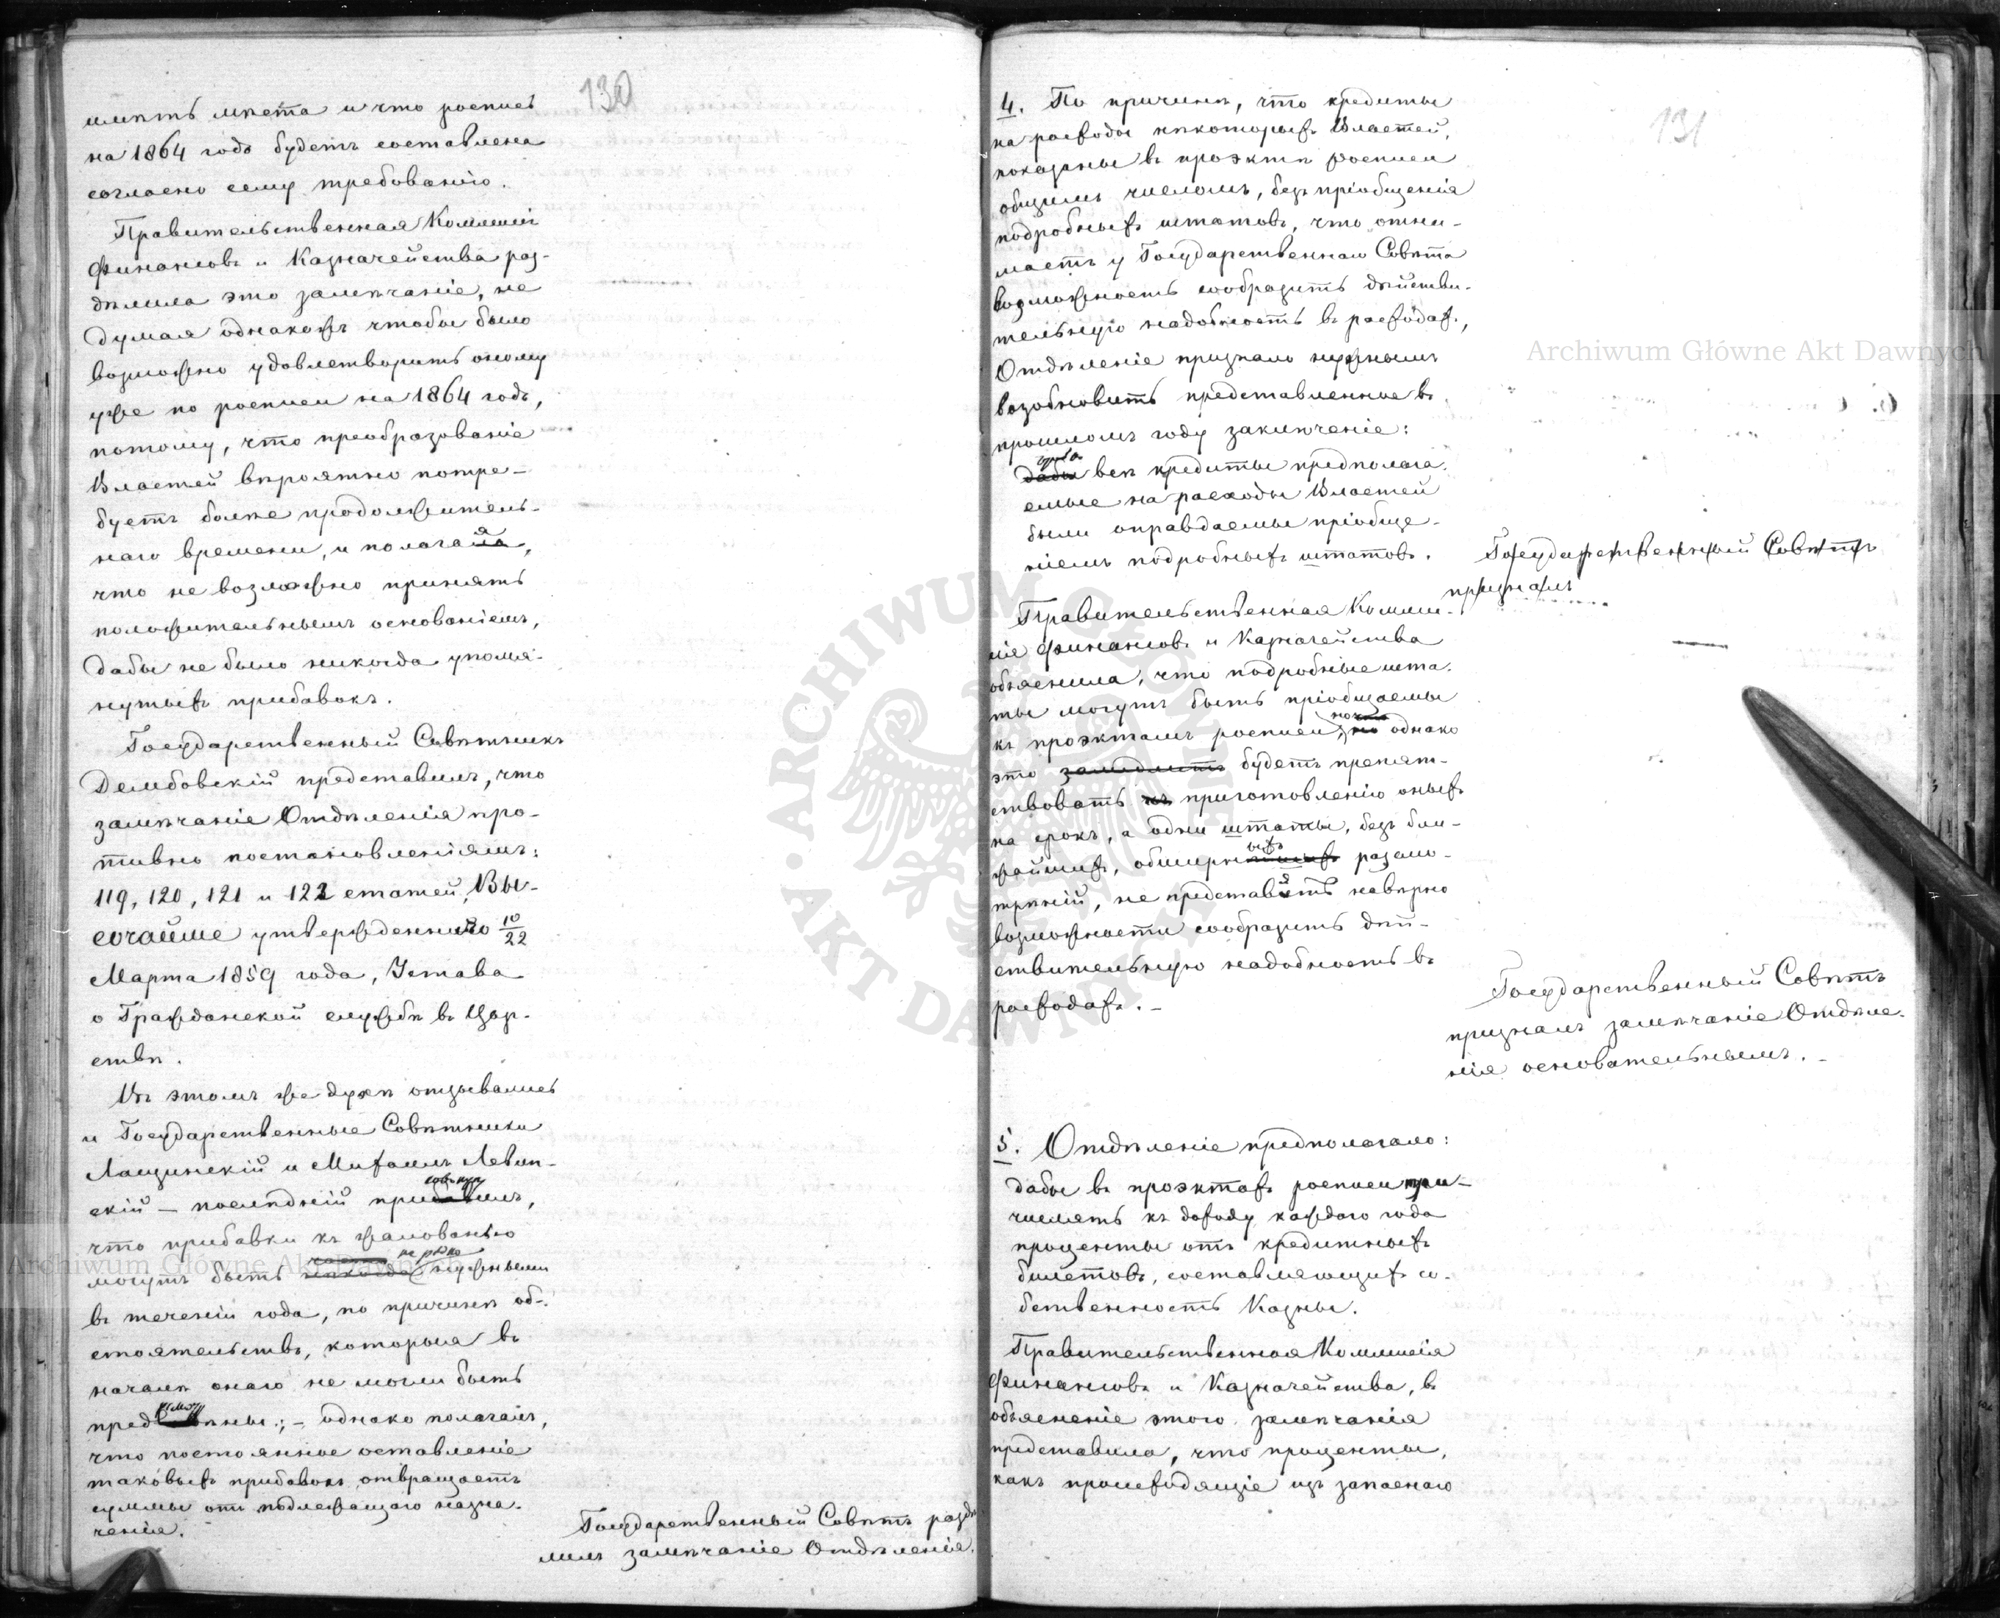 130
имѣть мѣста и что роспись
на 1864 годъ будетъ составлена
согласно сему требованію.
Правительственная Коммисія
Финансовъ и Казначейства раз-
дѣлила это замѣчаніе, не
думая однакожъ чтобы было
возможно удовлетворить оному
уже по росписи на 1864 годъ,
потому, что преобразованіе
Властей вѣроятно потре-
буетъ болѣе продолжитель-
наго времени, и полагая,
что не возможно принять
положительнымъ основаніемъ,
дабы не было никогда упомя-
нутыхъ прибавокъ.
Государственный Совѣтникъ
Дембовскій представилъ, что
замѣчаніе Отдѣленія про-
тивно постановленіямъ:
119, 120, 121 и 122 статей, Вы-
сочайше утвержденнаго 10/22
Марта 1859 года, Устава
о Гражданской службѣ въ Цар-
ствѣ.
Въ этомъ же духѣ отзывались
и Государственные Совѣтники
Лащинскій и Михаилъ Левин-
скій — послѣдній
что прибавки къ жалованью
могутъ быть не рѣдко нужными
въ теченіи года, по причинѣ об-
стоятельствъ, которыя въ
началѣ онаго не могли быть
однако полагалъ,
что постоянное оставленіе
таковыхъ прибавокъ отвращаетъ
суммы отъ подлежащаго назна-
ченія.
Государственный Совѣтъ раздѣ
лилъ замѣчаніе Отдѣленія.
131
4. По причинѣ, что кредиты
на расходы нѣкоторыхъ Властей,
показаны въ проэктѣ росписи
общимъ числомъ, безъ пріобщенія
подробныхъ штатовъ, что отни-
маетъ у Государственнаго Совѣта
возможность сообразить дѣйстви-
тельную надобность въ расходахъ,
Отдѣленіе признало нужнымъ
возобновить представленное въ
прошломъ году заключеніе:
чтобы
дабы всѣ кредиты предполага-
емые на расходы Властей
были оправдаемы пріобще-
ніемъ подробныхъ штатовъ.
Государственный Совѣтъ
призналъ
Правительственная Комми-
сія Финансовъ и Казначейства
объяснила, что подробные шта-
ты могутъ быть пріобщаемы
къ проэктамъ росписи, но однако
это замедлитъ будетъ препят-
ствовать къ приготовленію оныхъ
на срокъ, а одни штаты, безъ бли-
жайшихъ, обширныхъ разсмо-
трѣній, не представятъ навѣрно
возможности сообразить дѣй-
ствительную надобность въ
расходахъ. —
Государственный Совѣтъ
призналъ замѣчаніе Отдѣле-
нія основательнымъ. —
5. Отдѣленіе предполагало:
дабы въ проэктахъ росписи при-
числять къ доходу каждаго года
проценты отъ кредитныхъ
билетовъ, составляющихъ со-
бственность Казны.
Правительственная Коммисія
Финансовъ и Казначейства, въ
объясненіе этого замѣчанія
представила, что проценты,
какъ происходящіе изъ запаснаго
Archiwum Główne Akt Dawnych
Archiwum Główne Akt Dawnych
ARCHIWUM GŁÓWNE AKT DAWNYCH